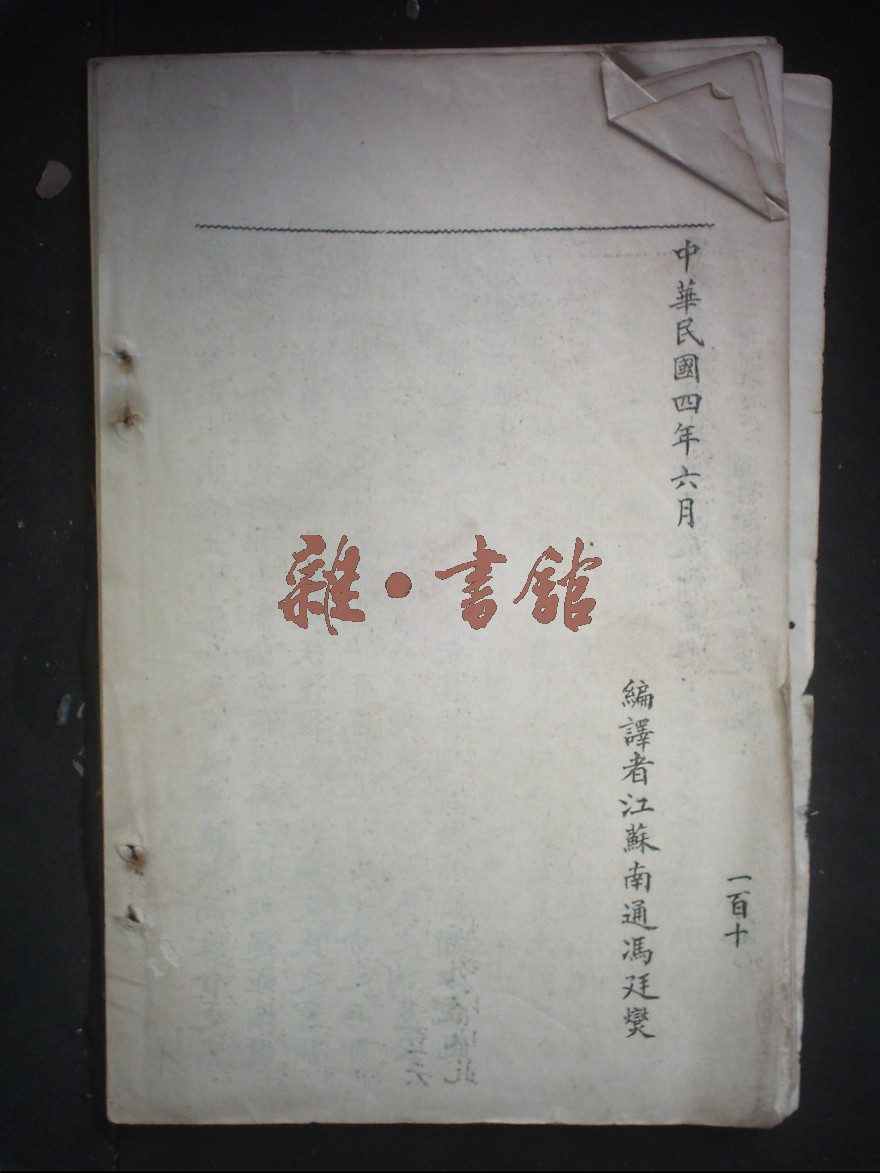 中華民國四年六月
編譯者江蘇南通馮廷爕
一百十
雜·書館